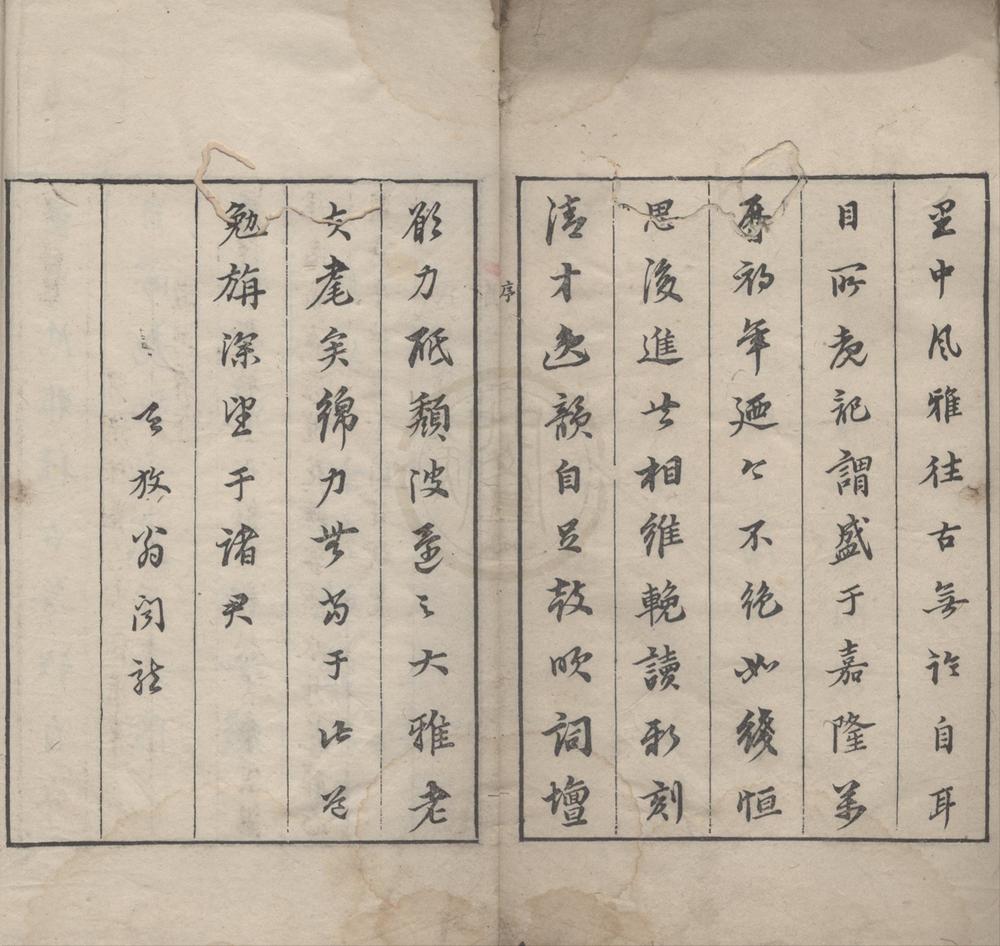 里中風雅往古無論自耳
目所記謂盛于嘉隆萬
曆初年迺今不絕如綫恒
思後進共相維輓讀新刻
清才逸韻自足鼓吹詞壇
序
願力砥頹波還之大雅老
夫耄矣綿力無當于此道
勉旃深望于諸君
天放翁